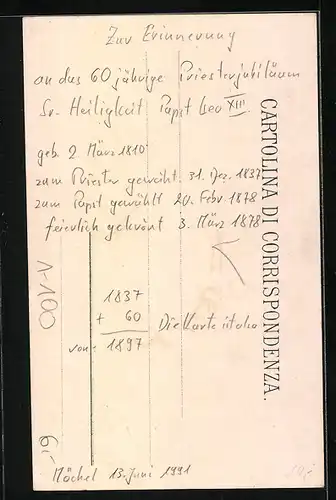 Zur Erinnerung
an das 60 jährige Priesterjubiläum
Sr. Heiligkeit Papst Leo XIII.
geb. 2 März 1810
zum Priester geweiht 31. Dez. 1837
zum Papst gewählt 20. Febr. 1878
feierlich gekrönt 3. März 1878
CARTOLINA DI CORRISPONDENZA.
1-100
1837
+ 60
von 1897
Die Karte ist also
6,-
13. Juni 1991